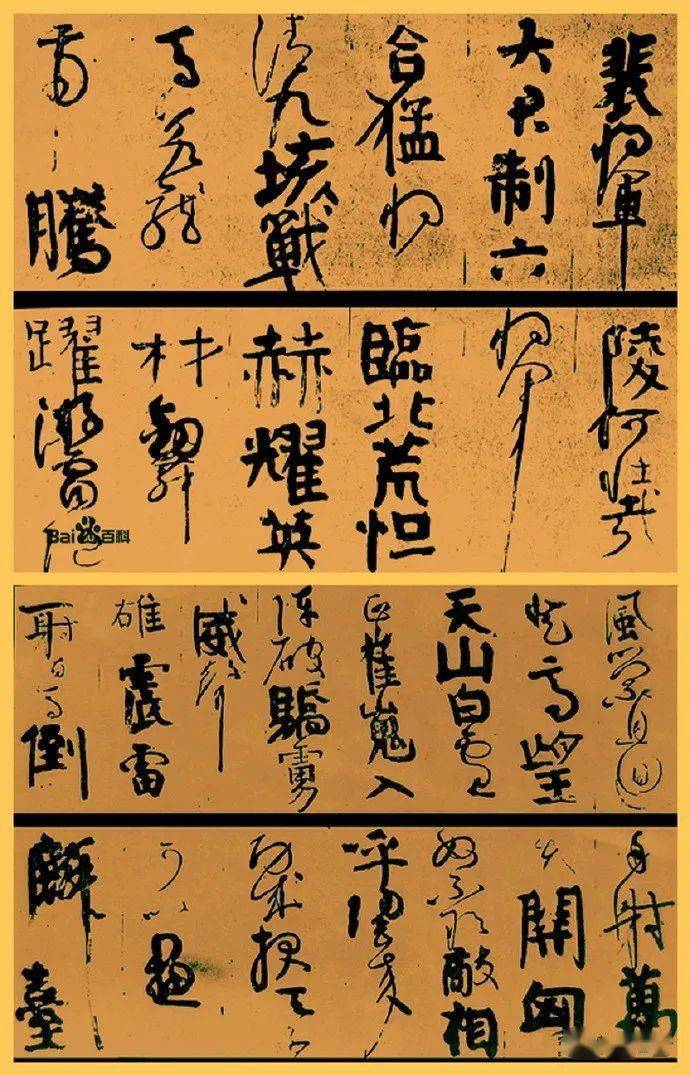 裴将軍
大君制六
合猛将
清九垓戰
馬若龍
虎騰
陵何壮哉
将軍
臨北荒烜
赫耀英
材劍舞
躍游電随
風縈且迴
登高望
天山白雲
正崔嵬入
陣破驕虜
威聲
雄震雷
一射百馬倒
再射萬
夫開匈
奴不敢敵相
呼歸去来
功成報天子
可以畫
麟臺
Bai百科